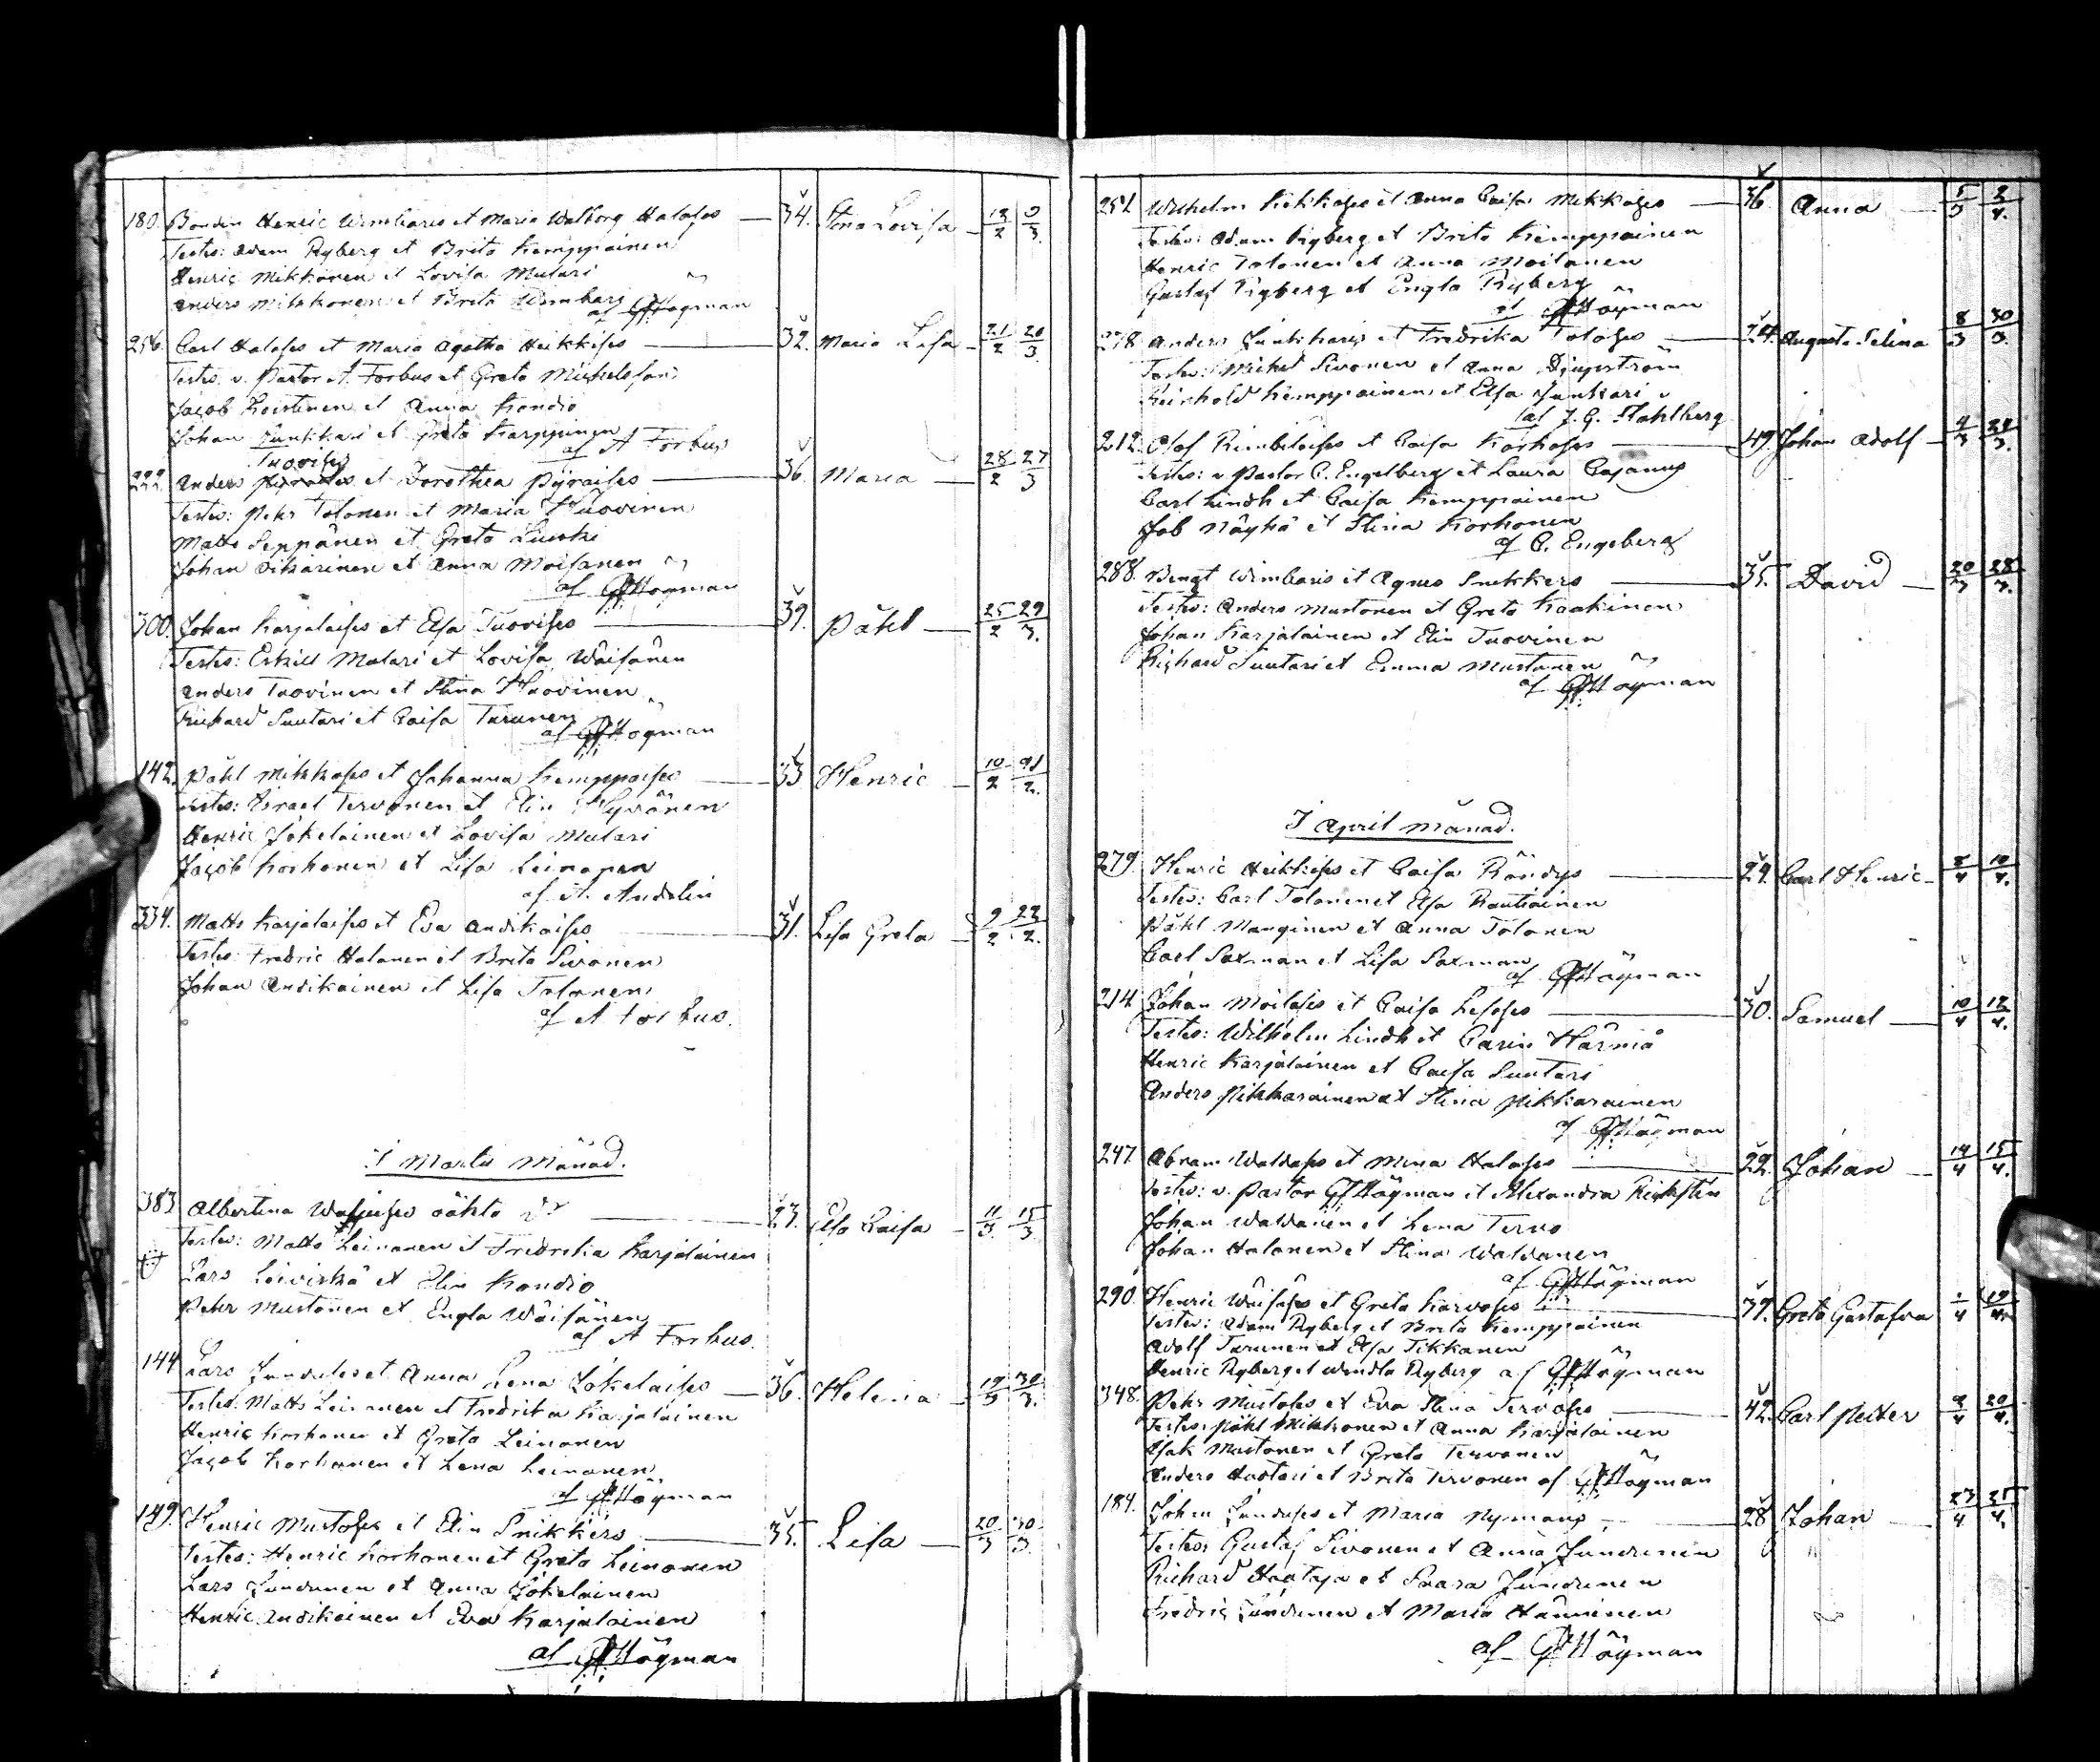 180. Bonden Henric Wimbaris et Maria Walborg Halosses — 34. Stina Lovisa — 12/2 9/3.
Testes: Adam Ryberg et Brita Kemppainen
Henric Mikkonen et Lovisa Mulari
Anders Mikkonen et Brita Wimbari
af Högman
256. Carl Halosses et Maria Agatha Heikkises — 32. Maria Lisa — 21/2 20/3.
Testes: v. Pastor A. Forbus et Greta Michelsson
Jacob Koistinen et Anna Kondio
Johan Junkkari et Greta Karppinen
af A Forbus
Tuovises
222. Anders et Dorothea Pyraises — 36. Maria — 28/2 27/3
Testes: Pehr Tolonen et Maria Huovinen
Matts Seppänen et Greta
Johan et Anna Moisanen
af Högman
300. Johan Karjalaises et Elsa Tuovises — 39. Påhl — 25/2 29/3.
Testes: Eskill Mulari et Lovisa Wäisänen
Anders Tuovinen et Stina Huovinen
Richard Suutari et Caisa Turunen
af Högman
142. Påhl Mikkoses et Johanna Kemppaises — 33 Henric — 10/2 21/2.
Testes: Israel Tervonen et Elin Hyvönen
Henric Jokelainen et Lovisa Mulari
Jacob Korhonen et Lisa Leinonen
af A. Andelin
334. Matts Karjalaises et Eva Andikaises — 31. Lisa Greta — 9/2 22/2.
Testes: Fredric Halonen et Brita Sivonen
Johan Andikainen et Lisa Tolonen
af A Forbus.
I Martii Månad.
383 Albertina oähta dr — 23. Elsa Caisa — 11/3 15/3
Testes: Matts Leinonen et Fredrika Karjalainen
Lars Leiviskä et Elin Kondio
Pehr Mustonen et Engla Wäisänen
af A Forbus.
144 Lars et Anna Lena Jokelaises — 36. Helena — 19/3 30/3.
Testes: Matts Leinonen et Fredrika Karjalainen
Henric Korhonen et Greta Leinonen
Jacob Korhonen et Lena Leinonen
af Högman
149. Henric Mustoses et Elin Snikkers — 35. Lisa — 20/3 30/3.
Testes: Henric Korhonen et Greta Leinonen
Lars Jundunen et Anna Jokelainen
Henric Andikainen et Eva Karjalainen
af Högman
251. Wilhelm Kikkoses et Anna Caisa Mikkoses — 36. Anna — 5/3 2/4.
Testes: Adam Ryberg et Brita Kemppainen
Henric Tolonen et Anna Moilanen
Gustaf Ryberg et Engla Ryberg
af Högman
278. Anders Junkkaris et Fredrika Toloses — 24. Augusta Selina 8/3 30/3.
Testes: Michel Sivonen et Anna Djupström
Reinhold Kemppainen et Elsa Junkari
af J. G. Stahlberg
212. Olof et Caisa Korhoses — 49. Johan Adolf — 4/3 24/3.
Testes: v Pastor C. Engelberg et Laura Cajanus
Carl Lindh et Caisa Kemppainen
Job Näykä et Stina Korhonen
af C. Engeberg
288. Bengt Wimbaris et Agnes Snikkers — 35. David — 20/3 28/3.
Testes: Anders Mustonen et Greta Kaakinen
Johan Karjalainen et Elin Tuovinen
Richard Suutari et Emma Mustonen
af Högman
I April månad.
279. Henric Heikkises et Caisa Röndys — 24. Carl Henric — 8/4 10/4.
Testes: Carl Tolonen et Elsa Rautiainen
Påhl Manginen et Anna Tolonen
Carl Saxman et Lisa Saxman
af Högman
214. Johan Moiloses et Caisa — 30. Samuel — 10/4 12/4.
Testes: Wilhelm Lindh et Carin Härmä
Henric Karjalainen et Caisa Suutari
Anders Pikkarainen et Stina Pikkarainen
af Högman
247. Abram Waldases et Mina Haloses — 22. Johan — 14/4 15/4.
Testes: v. Pastor Högman et Alexandra
Johan Waldanen et Lena Tervo
Johan Halonen et Stina Waldanen
af Högman
290. Henric Wäisäses et Greta Karvoses — 37. Greta Gustafva 1/4 19/4.
Testes: Adam Ryberg et Brita Kemppainen
Adolf Turunen et Elsa Tikkanen
Henric Ryberg et Wendla Ryberg af Högman
348. Pehr Mustoses et Eva Stina Tervoses — 42. Carl Petter 9/4 20/4.
Testes: Påhl Mikkonen et Anna Karjalainen
Isak Mustonen et Greta Tervonen
Anders Huotari et Brita Tervonen af Högman
184. Johan Junduses et Maria Nymans — 28 Johan — 23/4 25/4.
Testes: Gustaf Sivonen et Anna Jundunen
Richard Haataja et Saara Jundunen
Fredric Jundunen et Maria Hänninen
af Högman